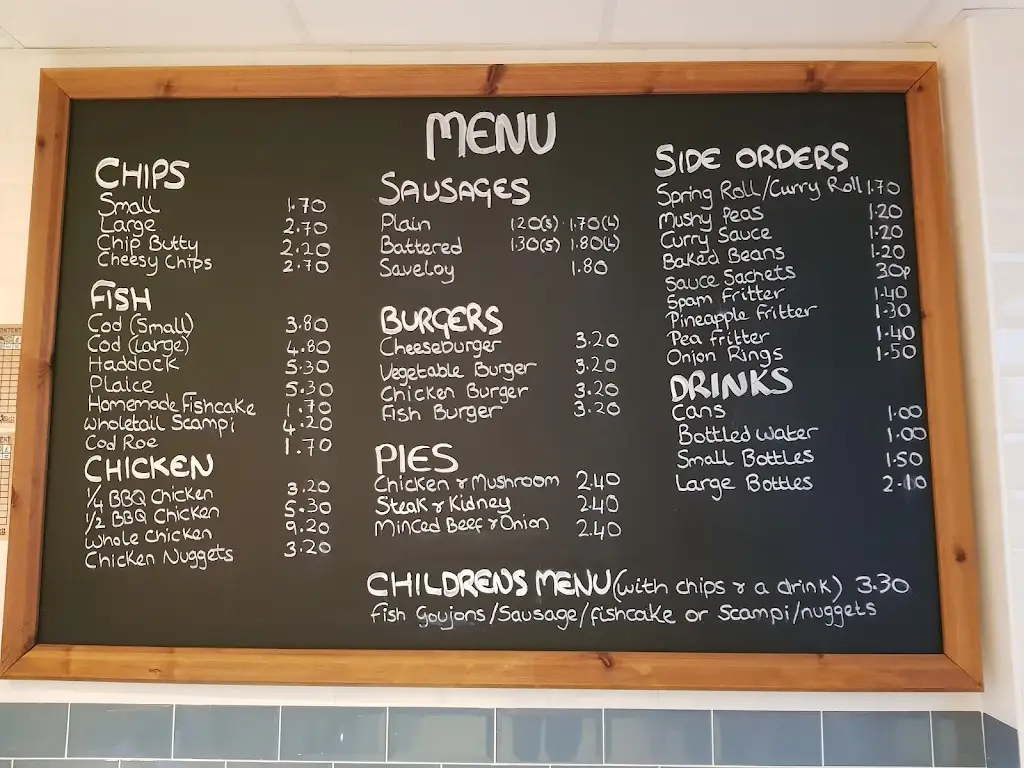 MENU
CHIPS
Small 1.70
Large 2.70
Chip Butty 2.20
Cheesy Chips 2.70
FISH
Cod (Small) 3.80
Cod (Large) 4.80
Haddock 5.30
Plaice 5.30
Homemade Fishcake 1.70
Wholetail Scampi 4.20
Cod Roe 1.70
CHICKEN
1/4 BBQ Chicken 3.20
1/2 BBQ Chicken 5.30
Whole Chicken 9.20
Chicken Nuggets 3.20
SAUSAGES
Plain 1.20(S) 1.70(L)
Battered 1.30(S) 1.80(L)
Saveloy 1.80
BURGERS
Cheeseburger 3.20
Vegetable Burger 3.20
Chicken Burger 3.20
Fish Burger 3.20
PIES
Chicken & Mushroom 2.40
Steak & Kidney 2.40
Minced Beef & Onion 2.40
SIDE ORDERS
Spring Roll/Curry Roll 1.70
Mushy Peas 1.20
Curry Sauce 1.20
Baked Beans 1.20
Sauce Sachets 30p
Spam Fritter 1.40
Pineapple Fritter 1.30
Pea Fritter 1.40
Onion Rings 1.50
DRINKS
Cans 1.00
Bottled Water 1.00
Small Bottles 1.50
Large Bottles 2.10
CHILDRENS MENU (with chips & a drink) 3.30
Fish Goujons/Sausage/fishcake or Scampi/nuggets